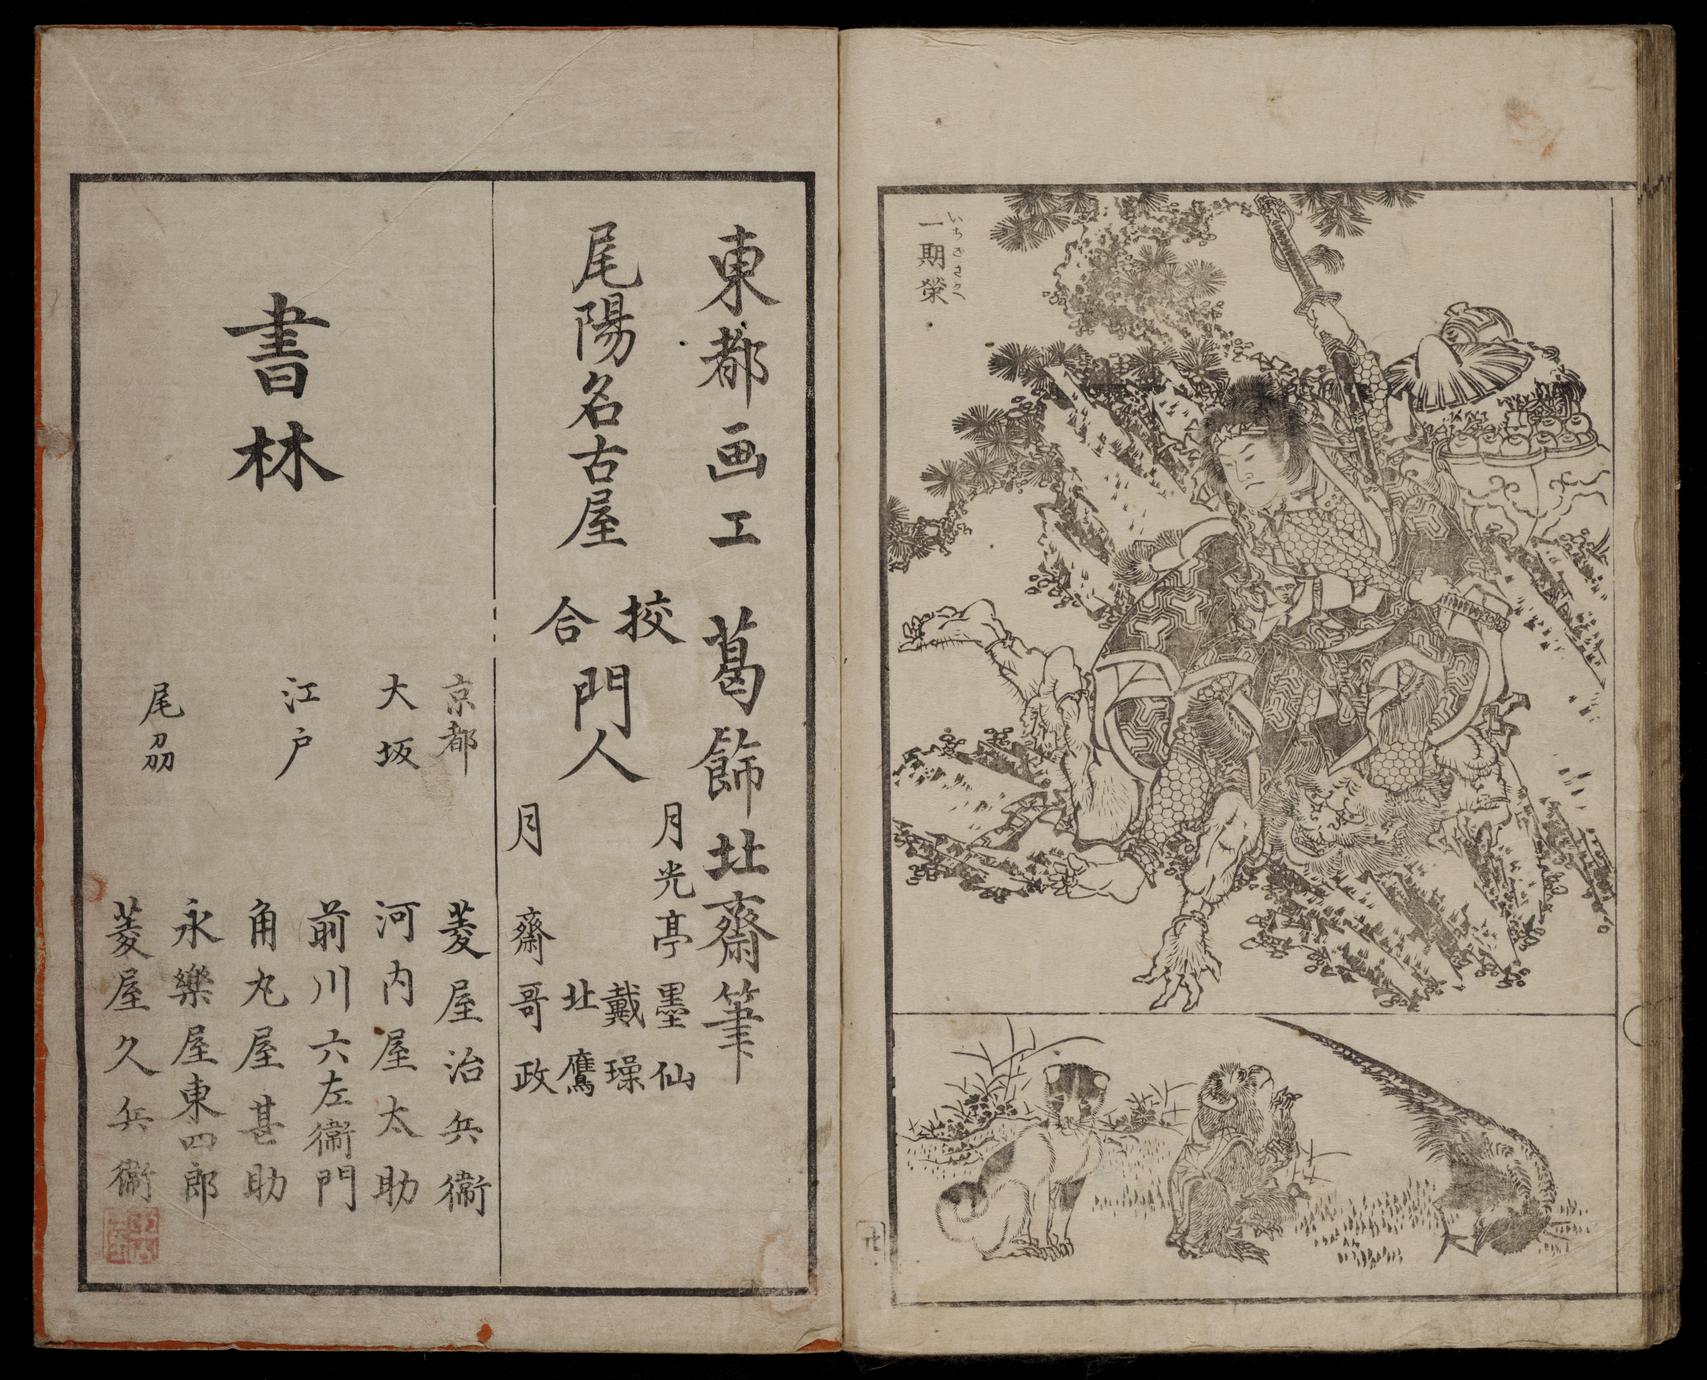 一期榮
いちごさかへ
廿
東都画工 葛飾北齋筆
尾陽名古屋
校合
門人
月光亭墨仙
戴璪
北鷹
月齋哥政
書林
京都 菱屋治兵衞
大坂 河内屋太助
江戸 前川六左衞門
角丸屋甚助
尾刕 永樂屋東四郎
菱屋久兵衞